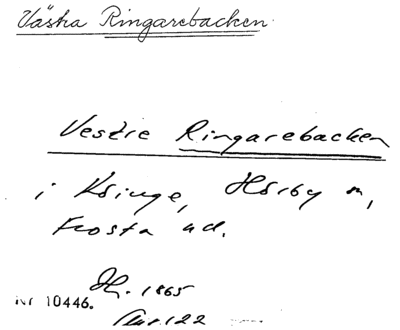 Västra Ringarebacken
Vestre Ringarebacken
i Ksinge, Hörby sn,
Frosta hd.
H. 1865
Nr 10446.
122